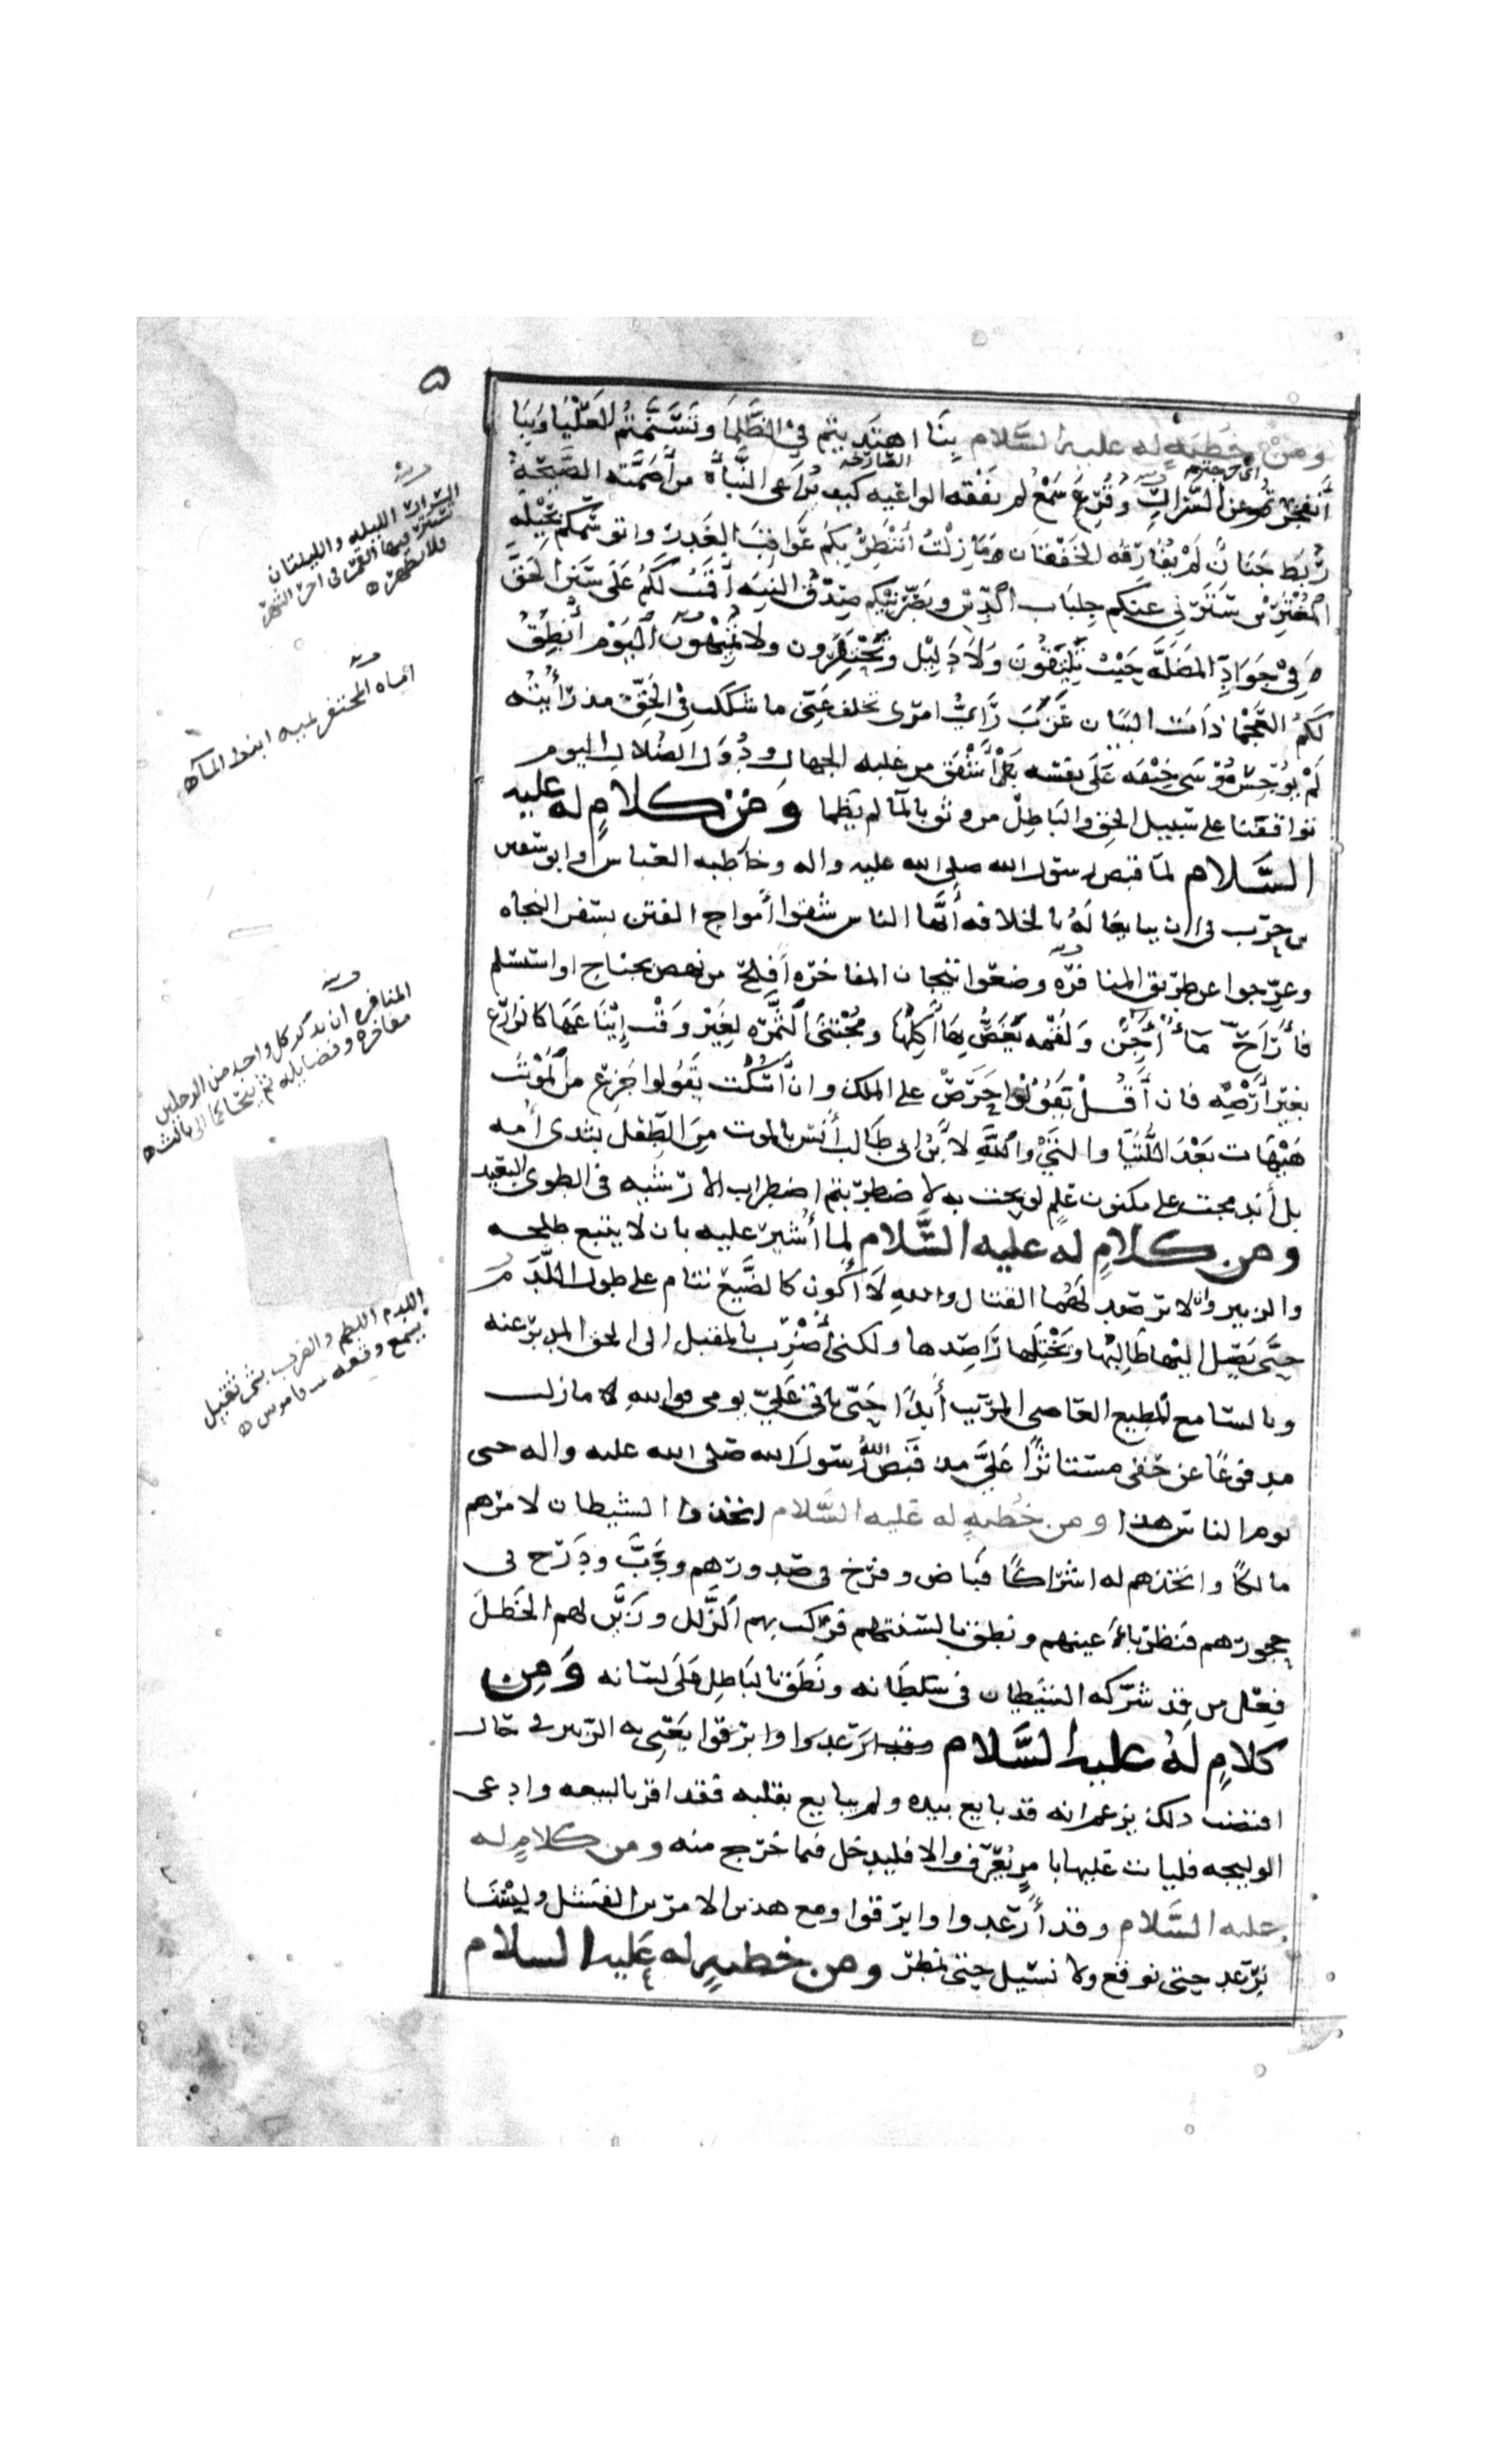 ٥
ومن خطبة له عليه السلام بنا اهتديتم في الظلما وتسنمتم العليا وبنا
انفجرتم عن السرار وقر سمع لم يفقه الواعيه كيف يراعى النبأة من اصمته الصيحة
اي دخلتم في الفجر
الصارخه
ربط جنان لم يفارقه الخفقان ما زلت أنتظر بكم عواقب الغدر واتوسمكم بحيلة
المغترين سترني عنكم جلباب الدين وبصرنيكم صدق النيه أقمت لكم على سنن الحق
في جواد المضله حيث تلتقون ولا دليل وتحتفرون ولا تميهون اليوم أنطق
لكم العجما ذات البيان غرب راي امرى تخلف عني ما شككت في الحق مذ رأيته
لم يوجس موسى خيفه على نفسه بل أشفق من غلبه الجهال ودول الضلال اليوم
تواقفنا على سبيل الحق والباطل من وثق بالما لم يظما ومن كلام له عليه
السلام لما قبض رسول الله صلى الله عليه واله وخاطبه العباس وابو سفين
بن حرب في ان يبايعا له بالخلافه أيها الناس شقوا أمواج الفتن بسفن النجاه
وعرجوا عن طريق المنافره وضعوا تيجان المفاخره أفلح من نهض بجناح او استسلم
فأراح ماء أجن ولقمه يغص بها أكلها ومجتنى الثمره لغير وقت إيناعها كالزارع
بغير أرضه فان أقل يقولوا حرص على الملك وان أسكت يقولوا جزع من الموت
هيهات بعد اللتيا والتي والله لابن ابى طالب أنس بالموت من الطفل بثدى أمه
بل أندمجت على مكنون علم لو بحت به لاضطربتم اضطراب الارشيه في الطوى البعيد
ومن كلام له عليه السلام لما أشير عليه بان لا يتبع طلحه
والزبير ولا يرصد لهما القتال والله لا أكون كالضبع تنام على طول اللدم
حتى يصل اليها طالبها ويختلها راصدها ولكني أضرب بالمقبل الى الحق المدبر عنه
وبالسامع المطيع العاصى المريب أبدا حتى ياتي علي يومى فوالله ما زلت
مدفوعا عن حقى مستاثرا علي مذ قبض الله رسوله صلى الله عليه واله حتى
يوم الناس هذا ومن خطبة له عليه السلام اتخذوا الشيطان لامرهم
مالكا واتخذهم له اشراكا فباض وفرخ في صدورهم ودب ودرج في
حجورهم فنظر باعينهم ونطق بالسنتهم فركب بهم الزلل وزين لهم الخطل
فعل من قد شركه الشيطان في سلطانه ونطق بالباطل على لسانه ومن
كلام له عليه السلام يعني به الزبير في حال
اقتضت ذلك يزعم انه قد بايع بيده ولم يبايع بقلبه فقد اقر بالبيعه وادعى
الوليجه فليات عليها بامر يعرف والا فليدخل فيما خرج منه ومن كلام له
عليه السلام وقد أرعدوا وابرقوا ومع هذين الامرين الفشل ولسنا
نرعد حتى نوقع ولا نسيل حتى نمطر ومن خطبة له عليه السلام
السرار الليله والليلتان
يستتر فيها القمر في اخر الشهر
فلا يظهر
اماه المحتفر بييه انبط المآء
المنافره ان يذكر كل واحد من الرجلين
مفاخره وفضايله ثم يتحاكما الى ثالث
اللدم اللطم والضرب بشى ثقيل
يسمع وقعه قاموس